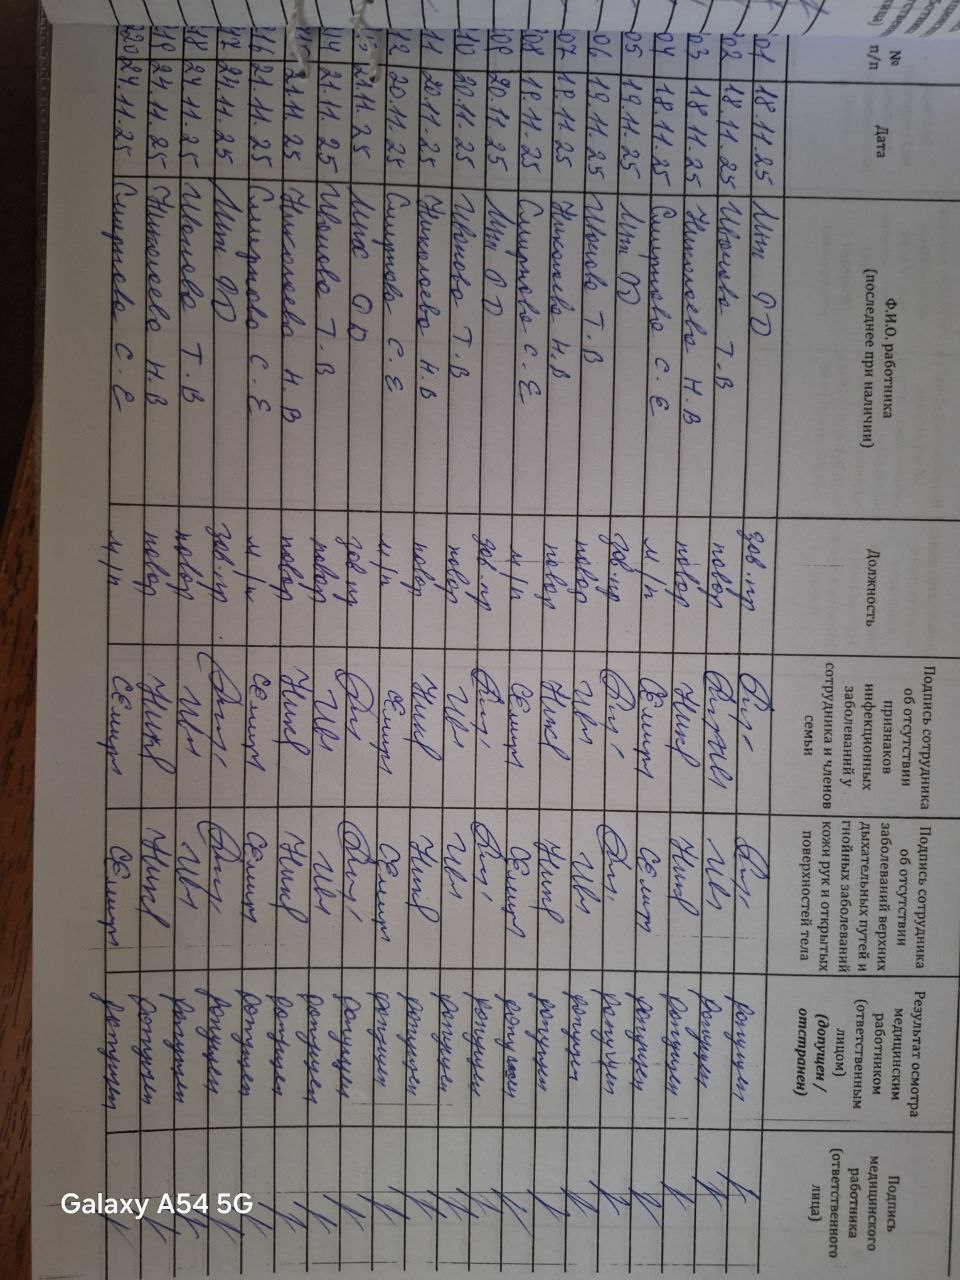 № п/п
Дата
Ф.И.О. работника
(последнее при наличии)
Должность
Подпись сотрудника
об отсутствии
признаков
инфекционных
заболеваний у
сотрудника и членов
семьи
Подпись сотрудника
об отсутствии
заболеваний верхних
дыхательных путей и
гнойных заболеваний
кожи рук и открытых
поверхностей тела
Результат осмотра
медицинским
работником
(ответственным
лицом)
(допущен /
отстранен)
Подпись
медицинского
работника
(ответственного
лица)
01 18.11.25 зав.пр допущен
02 18.11.25 Иванова Т.В повар Ив допущен
03 18.11.25 Николаева Н.В повар Ник Ник допущен
04 18.11.25 Смирнова С.Е м/п СЕмир СЕмир допущен
05 19.11.25 зав.пр допущен
06 19.11.25 Иванова Т.В повар Ив Ив допущен
07 19.11.25 Николаева Н.В повар Ник Ник допущен
08 19.11.25 Смирнова С.Е м/п СЕмир СЕмир допущен
09 20.11.25 зав.пр допущен
10 20.11.25 Иванова Т.В повар Ив Ив допущен
11 20.11.25 Николаева Н.В повар Ник Ник допущен
12 20.11.25 Смирнова С.Е м/п СЕмир СЕмир допущен
21.11.25 зав.пр допущен
14 21.11.25 Иванова Т.В повар Ив Ив допущен
21.11.25 Николаева Н.В повар Ник Ник допущен
16 21.11.25 Смирнова С.Е м/п СЕмир СЕмир допущен
17 24.11.25 зав.пр допущен
18 24.11.25 Иванова Т.В повар Ив Ив допущен
19 24.11.25 Николаева Н.В повар Ник Ник допущен
20 24.11.25 Смирнова С.Е м/п СЕмир СЕмир допущен
Galaxy A54 5G